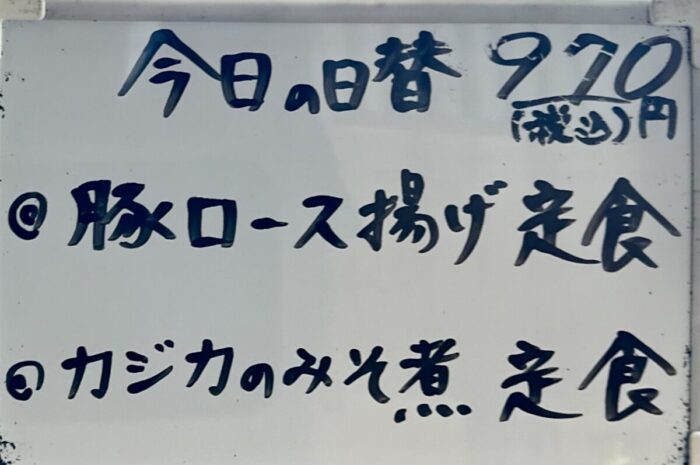 今日の日替 970円
(税込)
◎豚ロース揚げ定食
◎カジカのみそ煮定食